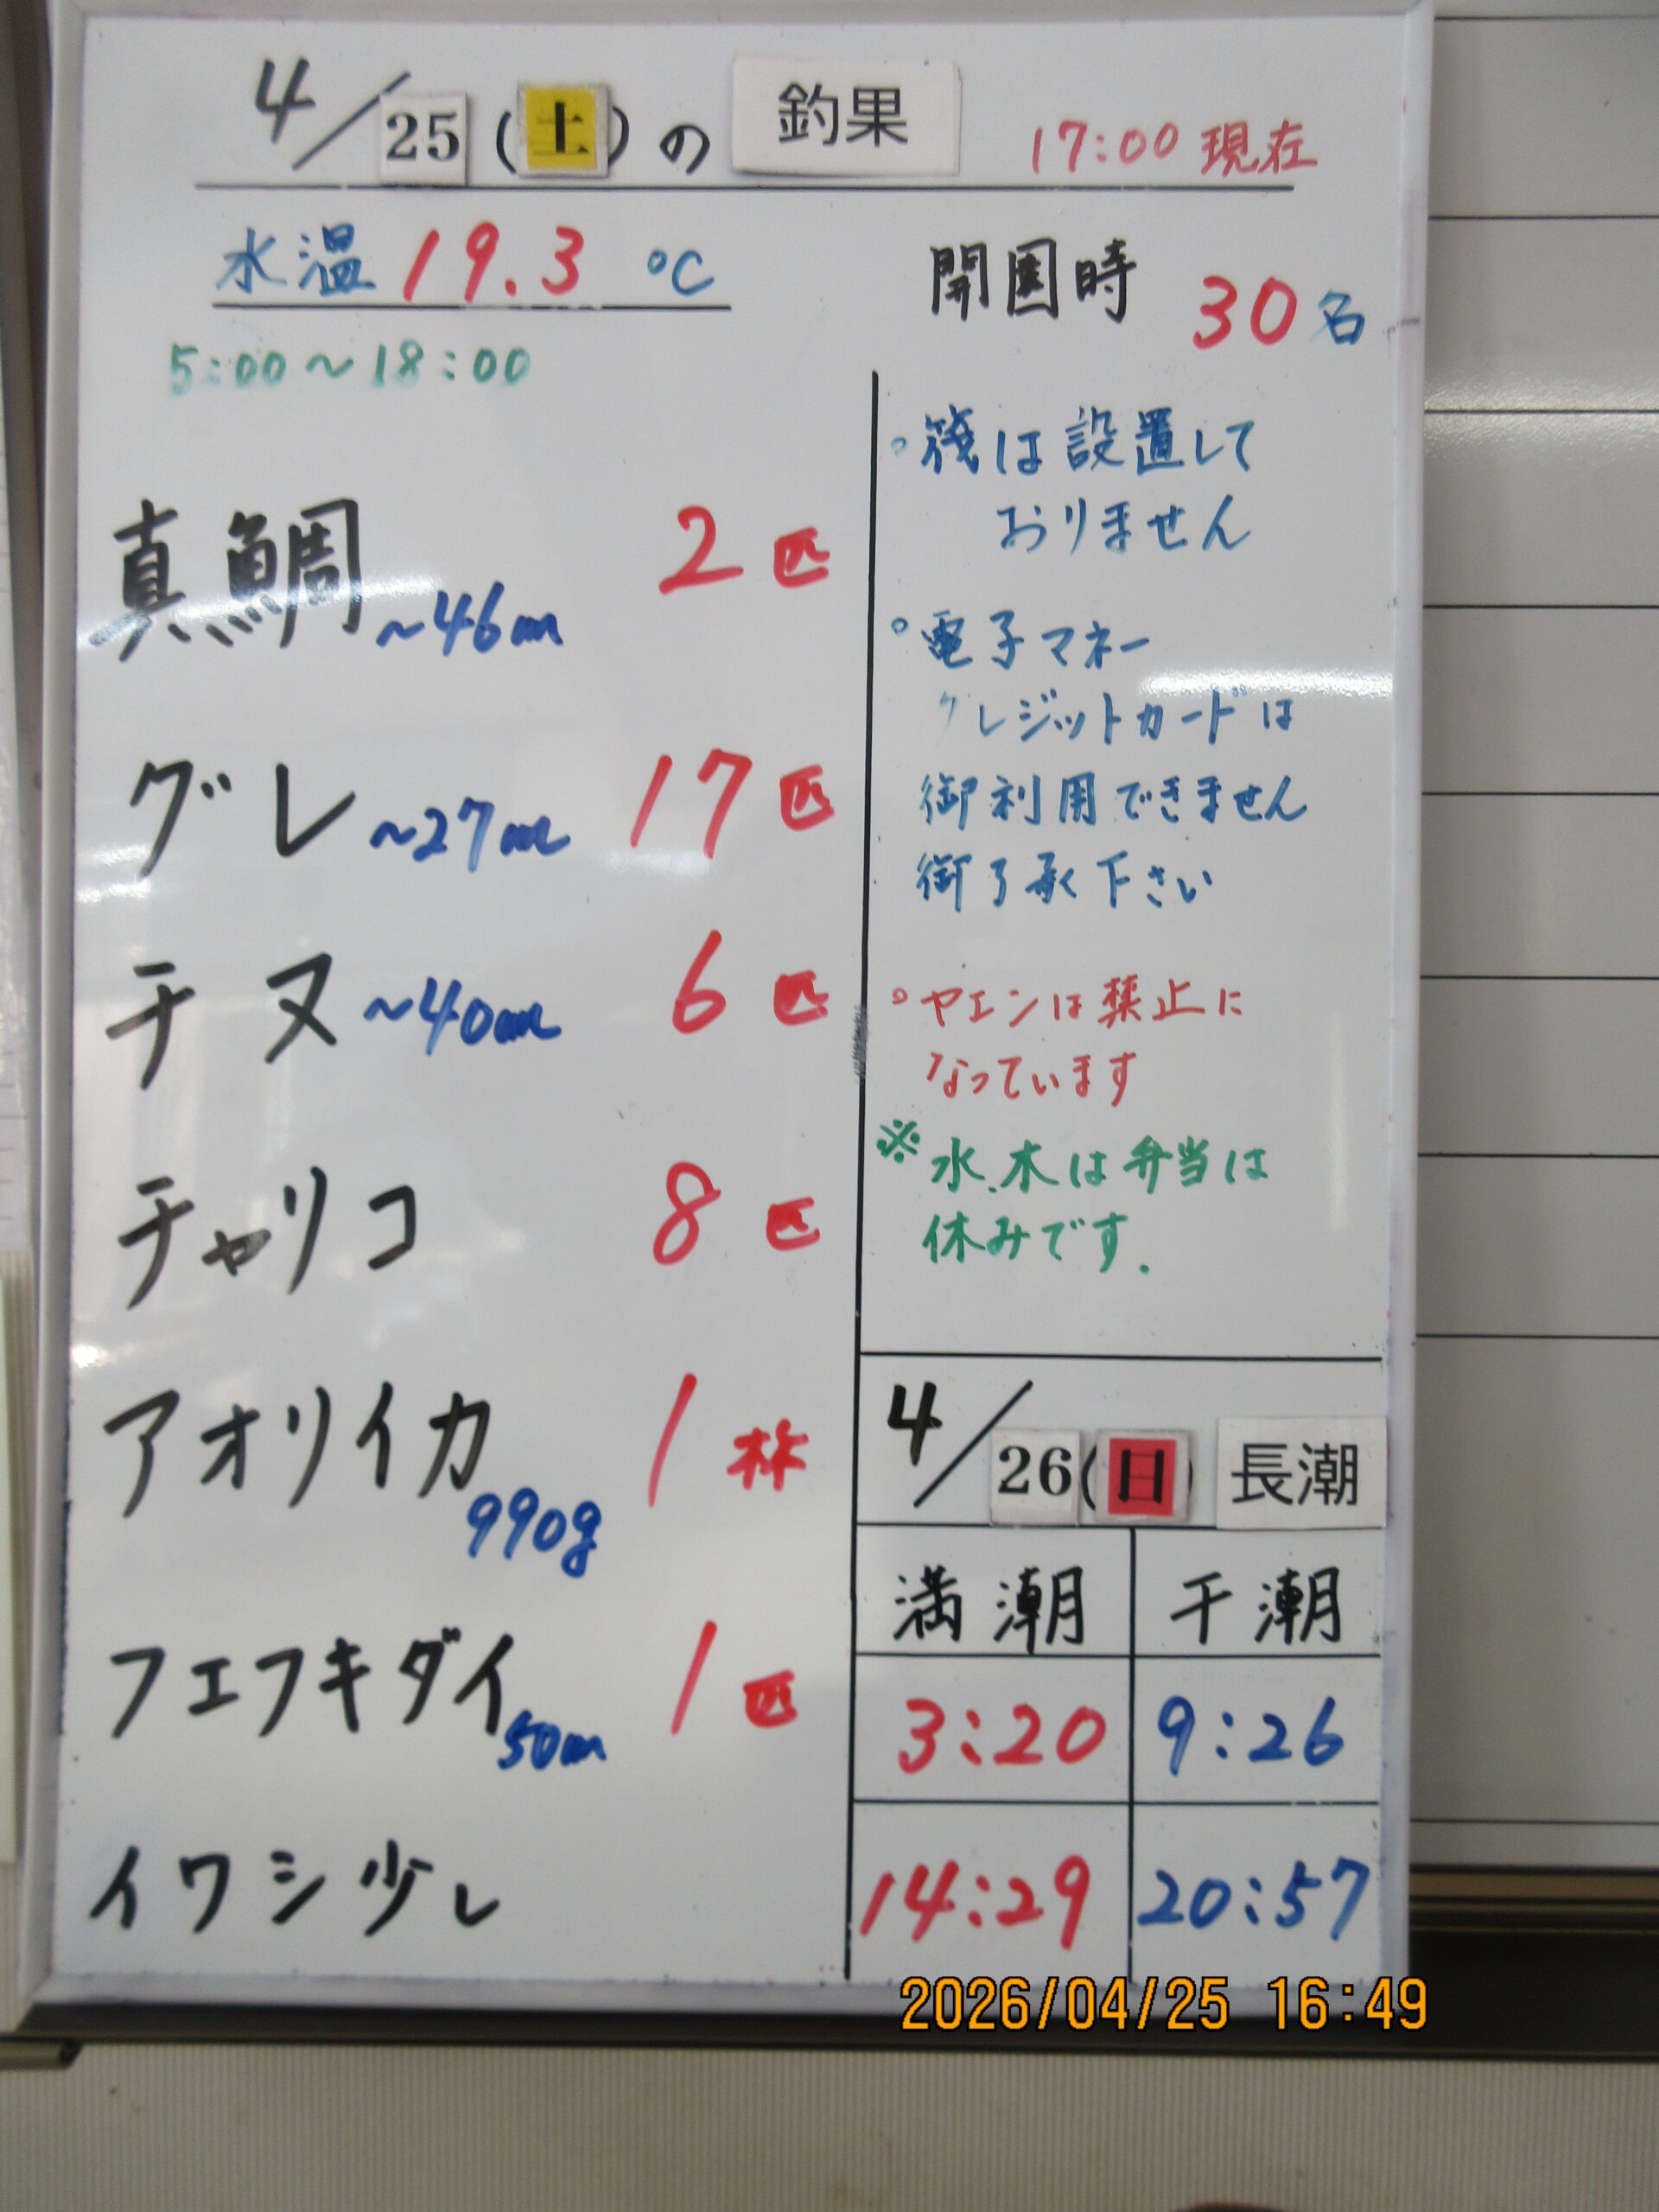 4/25(土)の 釣果 17:00 現在
水温 19.3 ℃
開園時 30名
5:00~18:00
真鯛 ~46cm 2匹
グレ ~27cm 17匹
チヌ ~40cm 6匹
チャリコ 8匹
アオリイカ 990g 1杯
フエフキダイ 50cm 1匹
イワシ少し
。筏は設置して
おりません
。電子マネー
クレジットカードは
御利用できません
御了承下さい
。ヤエンは禁止に
なっています
※水.木は弁当は
休みです.
4/26(日) 長潮
満潮 干潮
3:20 9:26
14:29 20:57
2026/04/25 16:49